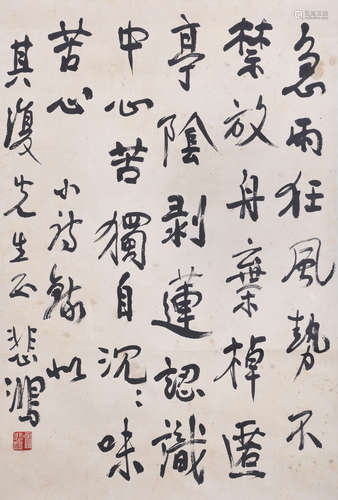 急雨狂風勢不
禁放舟棄棹匿
亭陰剥蓮認識
中心苦獨自沉:味
苦心 小詩錄似
其復先生正 悲鴻